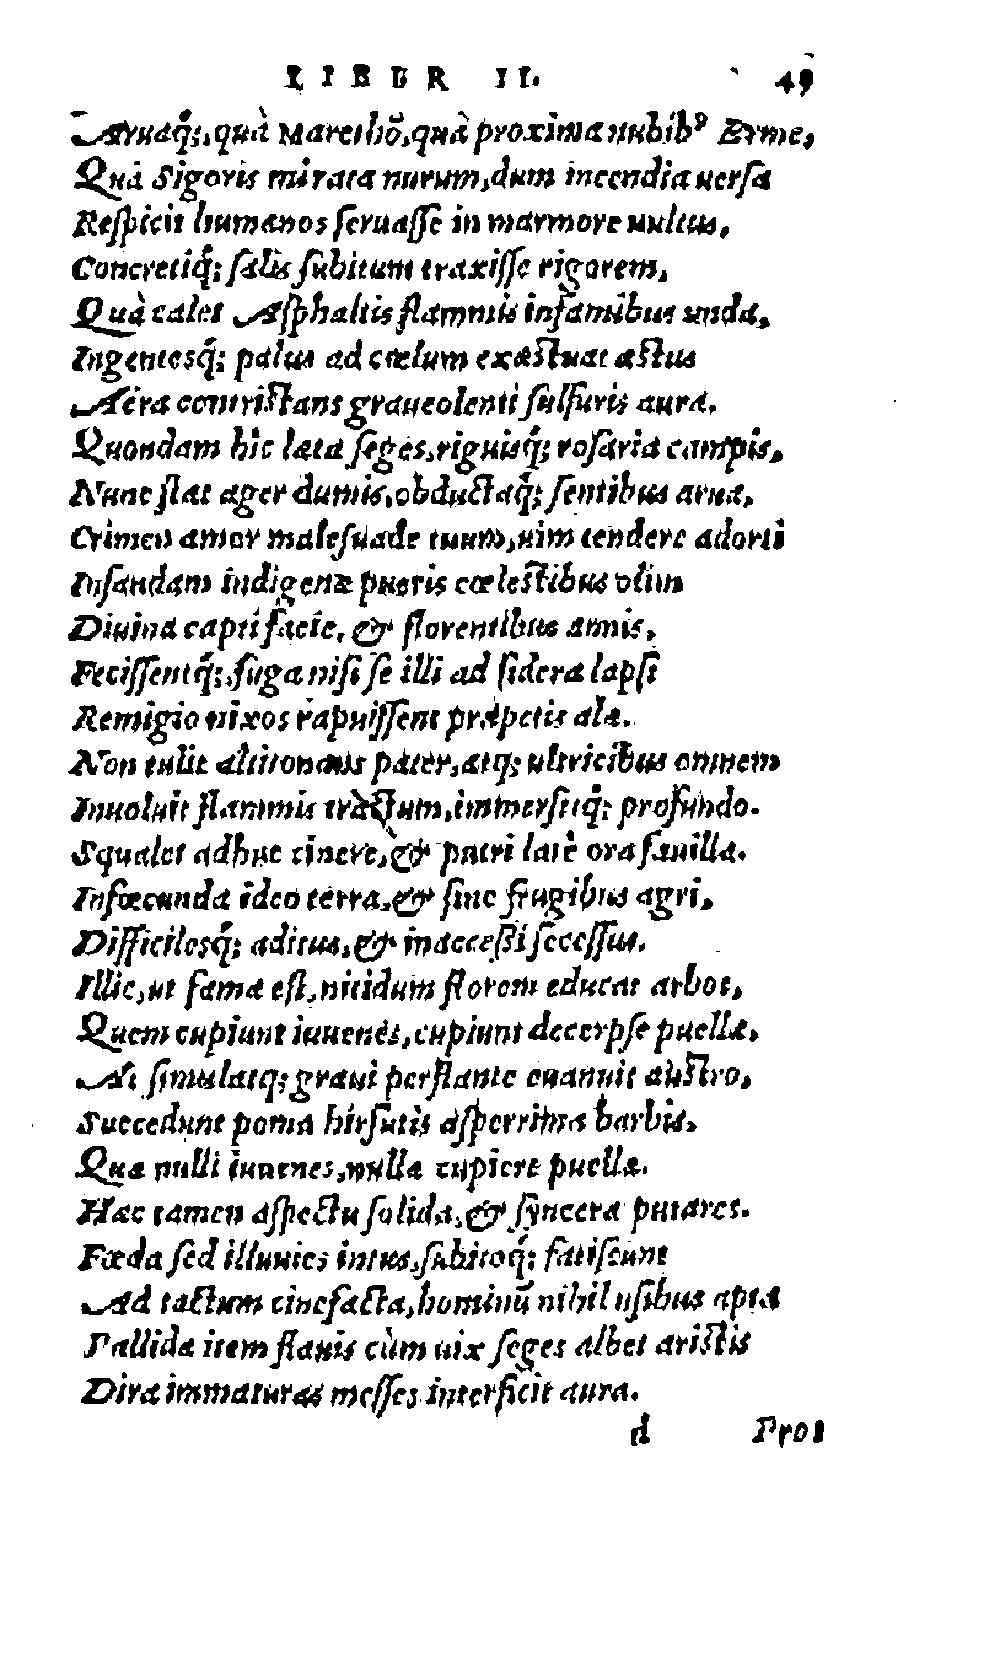 LIBER II. 49
Aruaq́;, quà Mareilhõ, quà proxima nubibꝰ Erme,
Quà Sigoris mirata nurum, dum incendia uersa
Respicit humanos seruasse in marmore uultus,
Concretiq́; salis subitum traxisse rigorem,
Quà calet Asphaltis flammis infamibus unda,
Ingentesq́; palus ad cœlum exæstuat æstus
Aëra contristans graueolenti sulfuris aura.
Quondam hîc læta seges, riguisq́; rosaria campis,
Nunc stat ager dumis, obductaq́; sentibus arua,
Crimen amor malesuade tuum, uim tendere adorti
Infandam indigenæ pueris cœlestibus olim
Diuina capti facie, & florentibus annis,
Fecissentq́;, fuga nisi se illi ad sidera lapsi
Remigio nixos rapuissent præpetis alæ.
Non tulit altitonans pater, atq; ultricibus omnem
Inuoluit flammis tractum, immersitq́; profundo.
Squalet adhuc cinere, & putri latè ora fauilla.
Infœcunda ideo terra, & sine frugibus agri,
Difficilesq́; aditus, & inaccessi secessus.
Illic, ut fama est, nitidum florem educat arbos,
Quem cupiunt iuuenes, cupiunt decerpse puellæ,
At simulatq; graui perflante euanuit austro,
Succedunt poma hirsutis asperrima barbis,
Quæ nulli iuuenes, nullæ cupiere puellæ.
Hæc tamen aspectu solida, & syncera putares.
Fœda sed illuuies intus, subitoq́; fatiscunt
Ad tactum cinefacta, hominũ nihil usibus apta
Pallida item flauis cùm uix seges albet aristis
Dira immaturas messes interficit aura.
d Pro